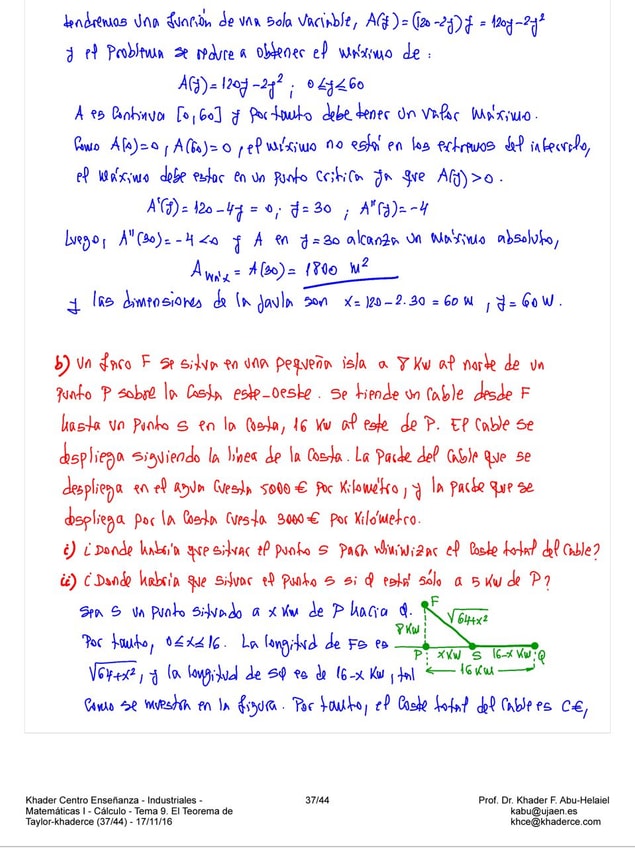 tendremos una función de una sola variable, A(y) = (120-2y)y = 120y-2y²
y el problema se reduce a obtener el máximo de :
A(y) = 120y-2y² ; 0≤y≤60
A es continua [0,60] y por tanto debe tener un valor máximo.
Como A(0)=0, A(60)=0, el máximo no está en los extremos del intervalo,
el máximo debe estar en un punto critico ya que A(y)>0.
A'(y) = 120-4y = 0; y=30 ; A''(y) = -4
Luego, A''(30) = -4<0 y A en y=30 alcanza un máximo absoluto,
Amáx = A(30) = 1800 m²
y las dimensiones de la jaula son x=120-2.30 = 60 m , y=60m.
b) Un faro F se situa en una pequeña isla a 8 Km al norte de un
punto P sobre la costa este-oeste. Se tiende un cable desde F
hasta un punto S en la costa, 16 Km al este de P. El cable se
despliega siguiendo la línea de la costa. La parte del cable que se
despliega en el agua cuesta 5000 € por kilométro, y la parte que se
despliega por la costa cuesta 3000 € por kilómetro.
i) ¿Donde habría que situar el punto S para minimizar el coste total del cable?
ii) ¿Donde habría que situar el punto S si Q está sólo a 5 Km de P?
Sea S un punto situado a x Km de P hacia Q.
Por tanto, 0≤x≤16. La longitud de FS es
√64+x², y la longitud de SQ es de 16-x Km, tal
como se muestra en la figura. Por tanto, el coste total del cable es C€,
F
√64+x²
8 Km
P x Km S 16-x Km Q
16 Km
Khader Centro Enseñanza - Industriales -
Matemáticas I - Cálculo - Tema 9. El Teorema de
Taylor-khaderce (37/44) - 17/11/16
37/44
Prof. Dr. Khader F. Abu-Helaiel
kabu@ujaen.es
khce@khaderce.com